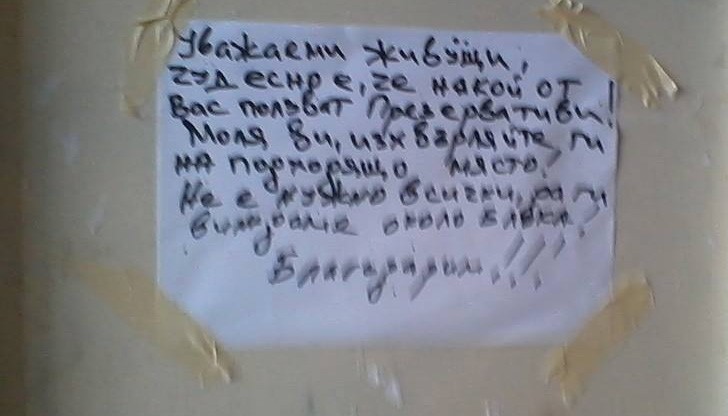 Уважаеми живущи,
чудесно е, че някой от
Вас ползват Презервативи!
Моля Ви, изхвърляйте ги
на подходящо място!
Не е нужно всички, да ги
виждаме около блока!
Благодарим!!!